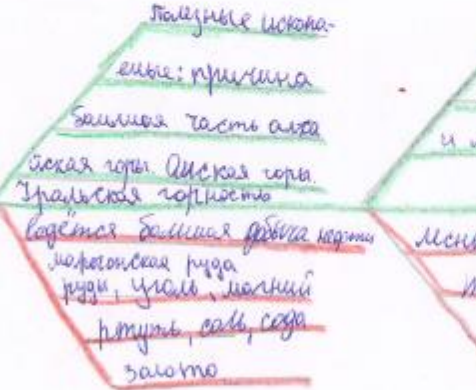 Полезные ископа-
емые: причина
большая часть алта
йская горы. Анская горы.
Уральская горность
ведётся большая добыча нефти
марганская руда
руды, уголь, магний
ртуть, соль, сода
золото
и
лесны